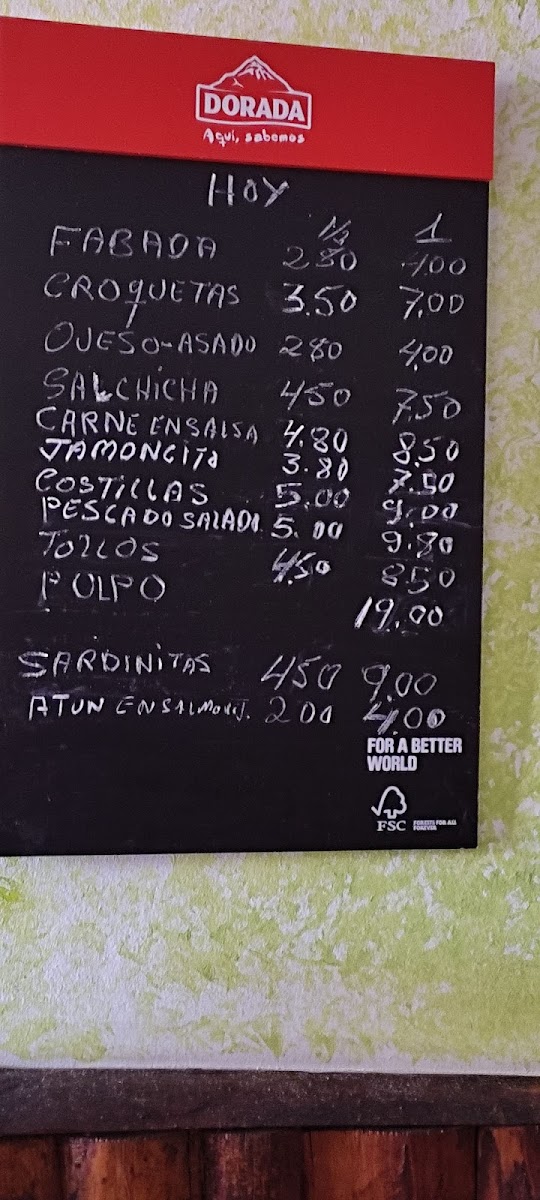 DORADA
Aquí, sabemos
HOY
1/2 1
FABADA 280 4,00
CROQUETAS 3.50 7,00
QUESO-ASADO 280 4,00
SALCHICHA 450 7.50
CARNE EN SALSA 4.80 8.50
JAMONCITO 3.80 7.50
COSTILLAS 5.00 9.00
PESCADO SALADO 5.00 9.80
TOLLOS 4.50 8.50
PULPO 19.00
SARDINITAS 450 9.00
ATUN EN SALMOREJ. 200 4.00
FOR A BETTER
WORLD
FSC
FORESTS FOR ALL
FOREVER